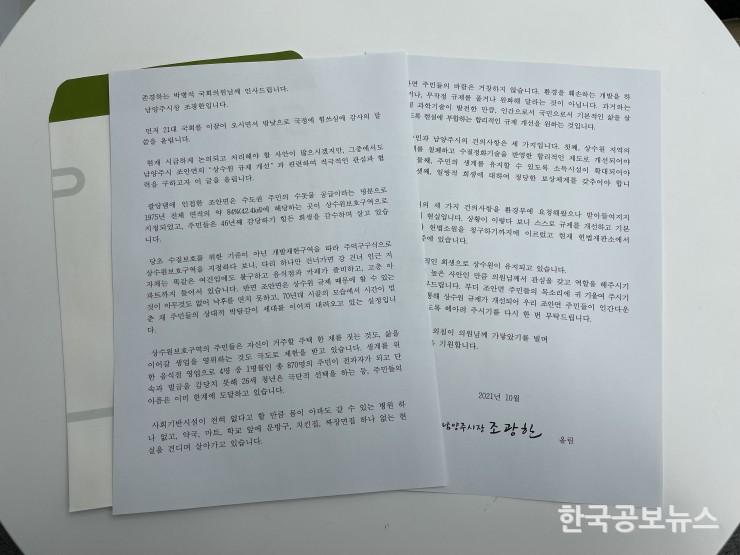 존경하는 박병석 국회의원님께 인사드립니다.
남양주시장 조광한입니다.
먼저 21대 국회를 이끌어 오시면서 밤낮으로 국정에 힘쓰심에 감사의 말
씀을 올립니다.
현재 시급하게 논의되고 처리해야 할 사안이 많으시겠지만, 그중에서도
남양주시 조안면의 "상수원 규제 개선" 과 관련하여 적극적인 관심과 협
력을 구하고자 이 글을 올립니다.
팔당댐에 인접한 조안면은 수도권 주민의 수돗물 공급이라는 명분으로
1975년 전체 면적의 약 84%(42.4㎢)에 해당하는 곳이 상수원보호구역으로
지정되었고, 주민들은 46년째 감당하기 힘든 희생을 감수하며 살고 있습
니다.
당초 수질보호를 위한 기준이 아닌 개발제한구역을 따라 주먹구구식으로
상수원보호구역을 지정하다 보니, 다리 하나만 건너가면 강 건너 인근 지
자체는 똑같은 여건임에도 불구하고 음식점과 카페가 즐비하고, 고층 아
파트까지 들어서 있습니다. 반면 조안면은 상수원 규제 때문에 할 수 있는
것이 아무것도 없어 낙후를 면치 못하고, 70년대 시골의 모습에서 시간이 멈
춘 채 주민들의 상대적 박탈감이 세대를 이어져 내려오고 있는 실정입니
다.
상수원보호구역의 주민들은 자신이 거주할 주택 한 채를 짓는 것도, 삶을
이어갈 생업을 영위하는 것도 극도로 제한을 받고 있습니다. 생계를 위
한 음식점 영업으로 4명 중 1명꼴인 총 870명의 주민이 전과자가 되고 단
속과 벌금을 감당치 못해 26세 청년은 극단적 선택을 하는 등, 주민들의
아픔은 이미 한계에 도달하고 있습니다.
사회기반시설이 전혀 없다고 할 만큼 몸이 아파도 갈 수 있는 병원 하
나 없고, 약국, 마트, 학교 앞에 문방구, 치킨집, 짜장면집 하나 없는 현
실을 견디며 살아가고 있습니다.
주민들의 바람은 거창하지 않습니다. 환경을 훼손하는 개발을 하
무작정 규제를 풀거나 완화해 달라는 것이 아닙니다. 과거와는
과학기술이 발전한 만큼, 인간으로서 국민으로서 기본적인 삶을 살
현실에 부합하는 합리적인 규제 개선을 원하는 것입니다.
남양주시의 건의사항은 세 가지입니다. 첫째, 상수원 지역의
철폐하고 수질정화기술을 반영한 합리적인 제도로 개선되어야
둘째, 주민의 생계를 유지할 수 있도록 소득시설이 확대되어야
셋째, 일방적 희생에 대하여 정당한 보상체계를 갖추어야 합니
세 가지 건의사항을 환경부에 요청해왔으나 받아들여지지
현실입니다. 상황이 이렇다 보니 스스로 규제를 개선하고 기본
헌법소원을 청구하기까지에 이르렀고 현재 헌법재판소에서
있습니다.
희생으로 상수원이 유지되고 있습니다.
높은 사안인 만큼 의원님께서 관심을 갖고 역할을 해주시기
부디 조안면 주민들의 목소리에 귀 기울여 주시기
통해 상수원 규제가 개선되어 우리 조안면 주민들이 인간다운
헤아려 주시기를 다시 한 번 부탁드립니다.
의원님께 가닿았기를 빌며
기원합니다.
2021년 10월
남양주시장 조광한 올림
한국공보뉴스